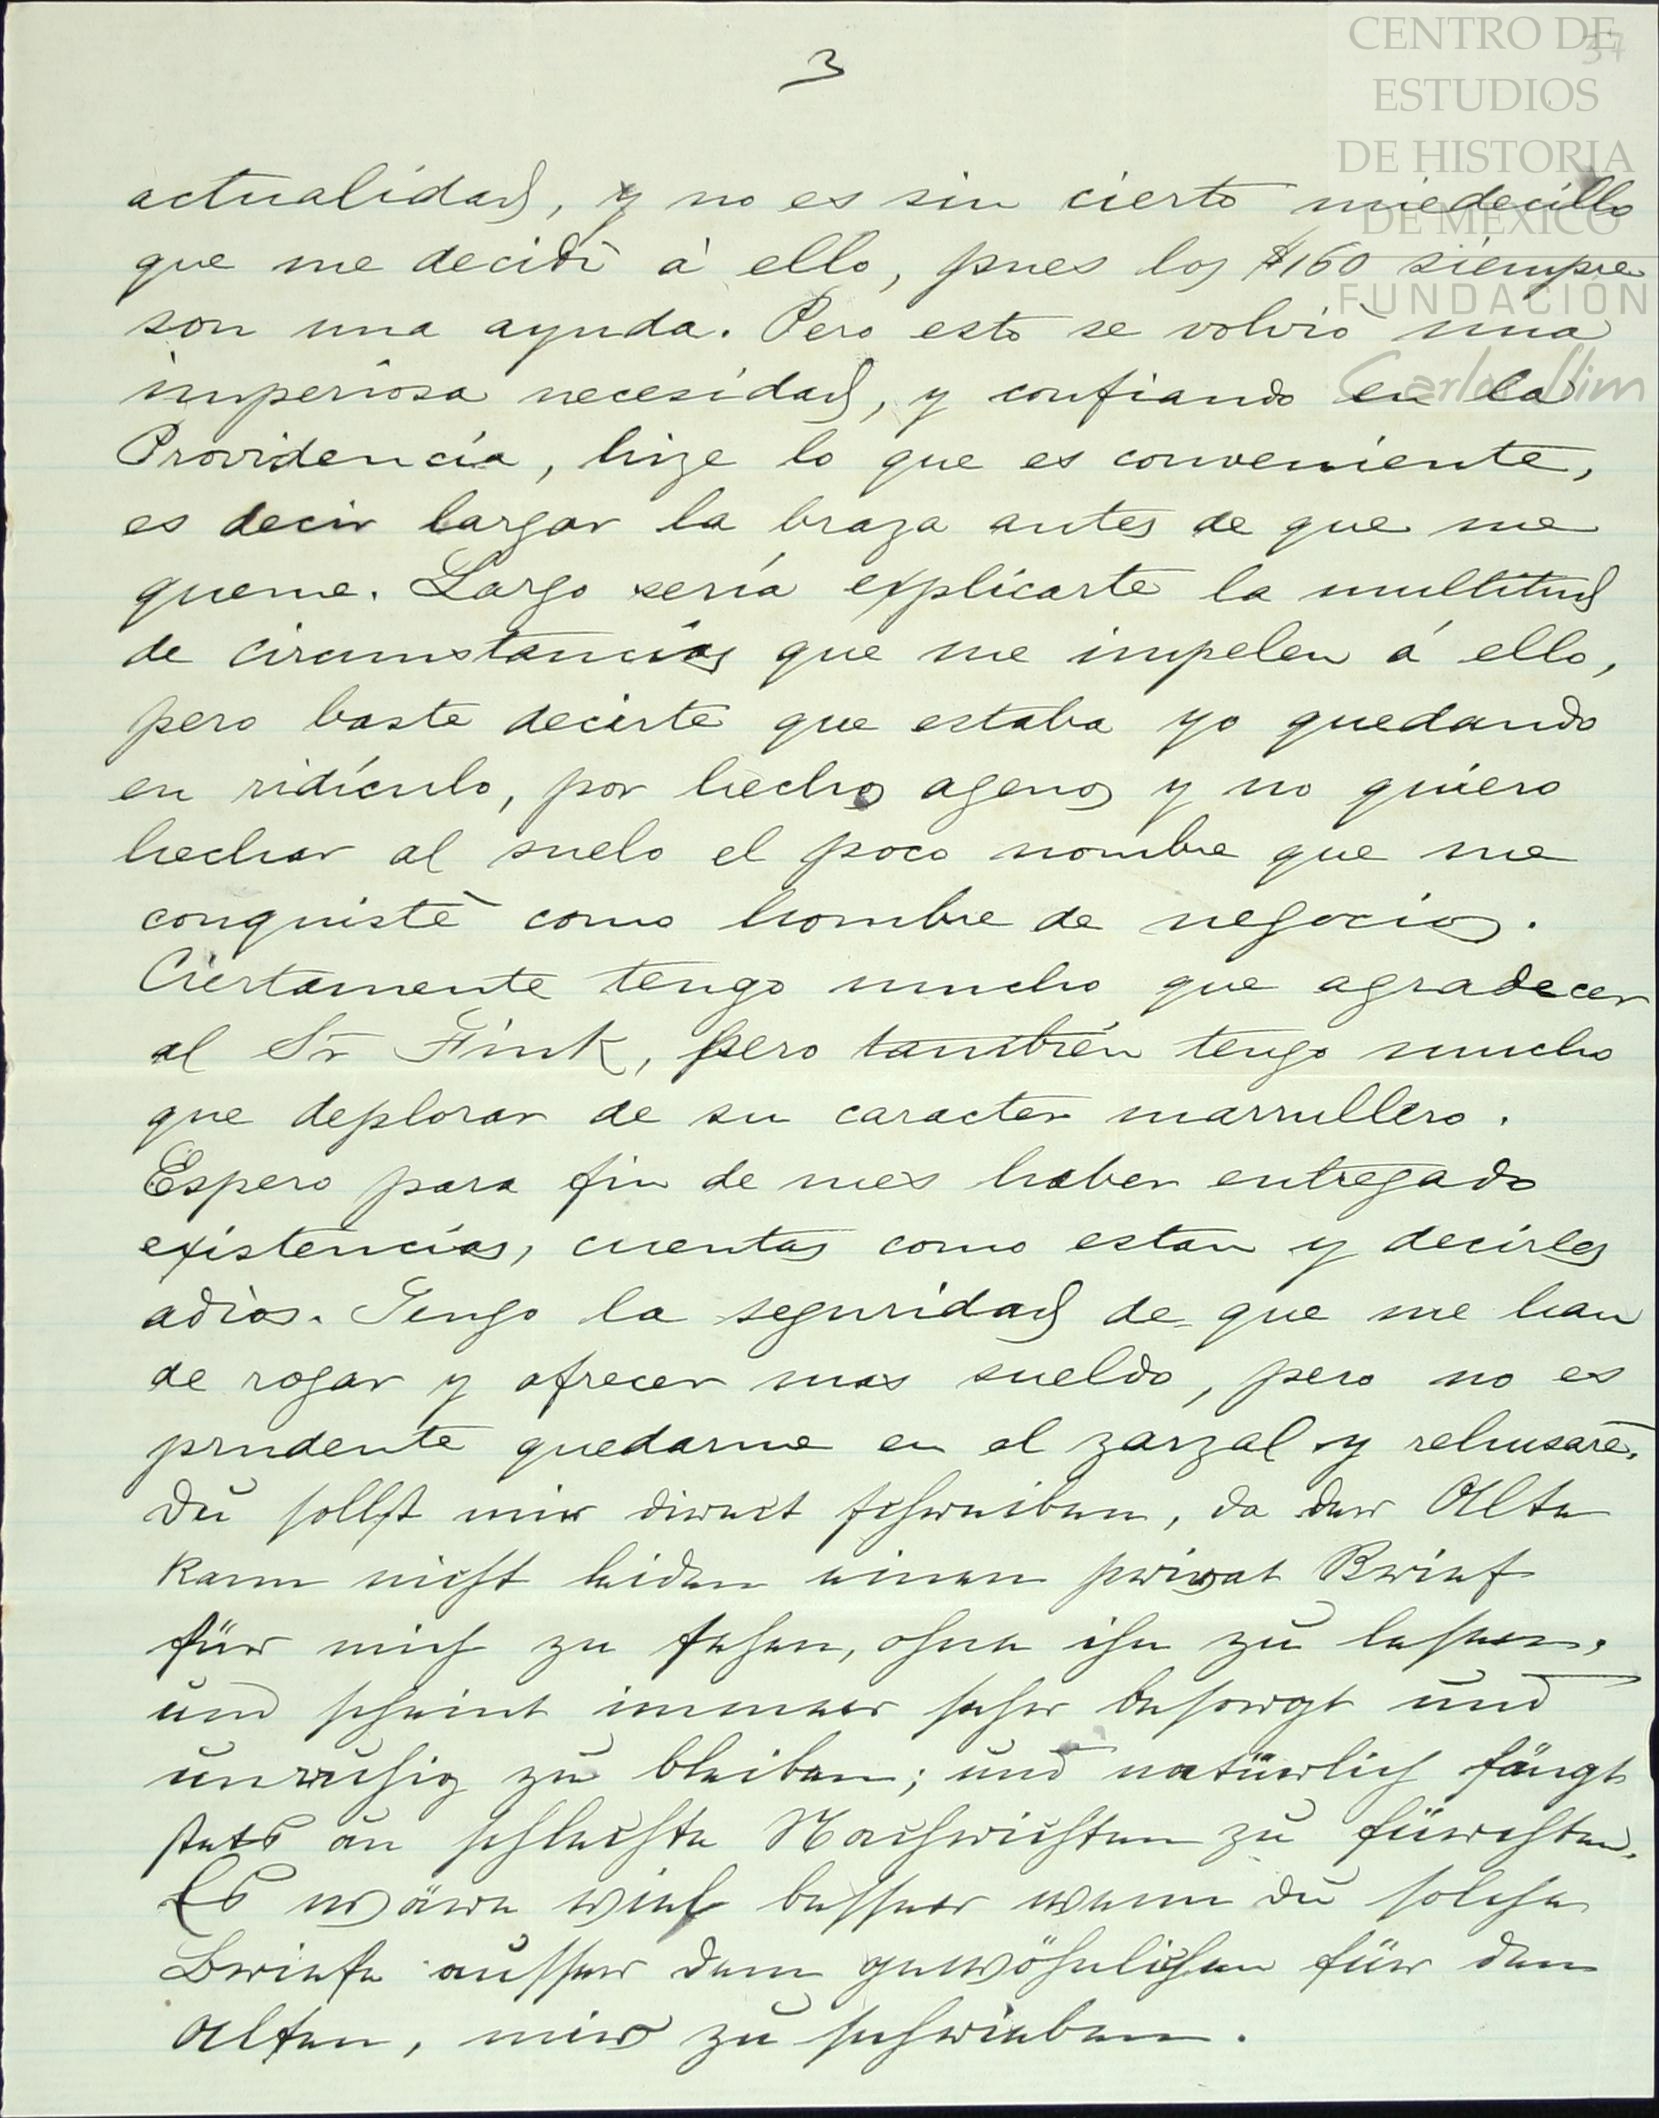 3
37
CENTRO DE
ESTUDIOS
DE HISTORIA
DE MÉXICO
FUNDACIÓN
Carlos Slim
actualidad, y no es sin cierto miedecillo
que me decidi á ello, pues los $160 siempre
son una ayuda. Pero esto se volvió una
imperiosa necesidad, y confiando en la
Providencia, hize lo que es conveniente,
es decir largar la braza antes de que me
queme. Largo sería explicarte la multitud
de circumstancias que me impelen á ello,
pero baste decirte que estaba yo quedando
en ridículo, por hechos agenos y no quiero
hechar al suelo el poco nombre que me
conquisté como hombre de negocios.
Ciertamente tengo mucho que agradecer
al Sr Fink, pero también tengo mucho
que deplorar de su caracter marrullero.
Espero para fin de mes haber entregado
existencias, cuentas como estan y decirles
adios. Tengo la seguridad de que me han
de rogar y ofrecer mas sueldo, pero no es
prudente quedarme en el zarzal y rehusaré.
Du sollst mir direct schreiben, da der Alte
kann nicht leiden einen privat Brief
für mich zu sehen, ohne ihn zu lesen,
und scheint immer sehr besorgt und
unruhig zu bleiben; und natürlich fängt
stets an schlechte Nachrichten zu fürchten.
Es wäre viel besser wenn du solche
Briefe ausser dem gewöhnlichen für den
Alten, mir zu schrieben.